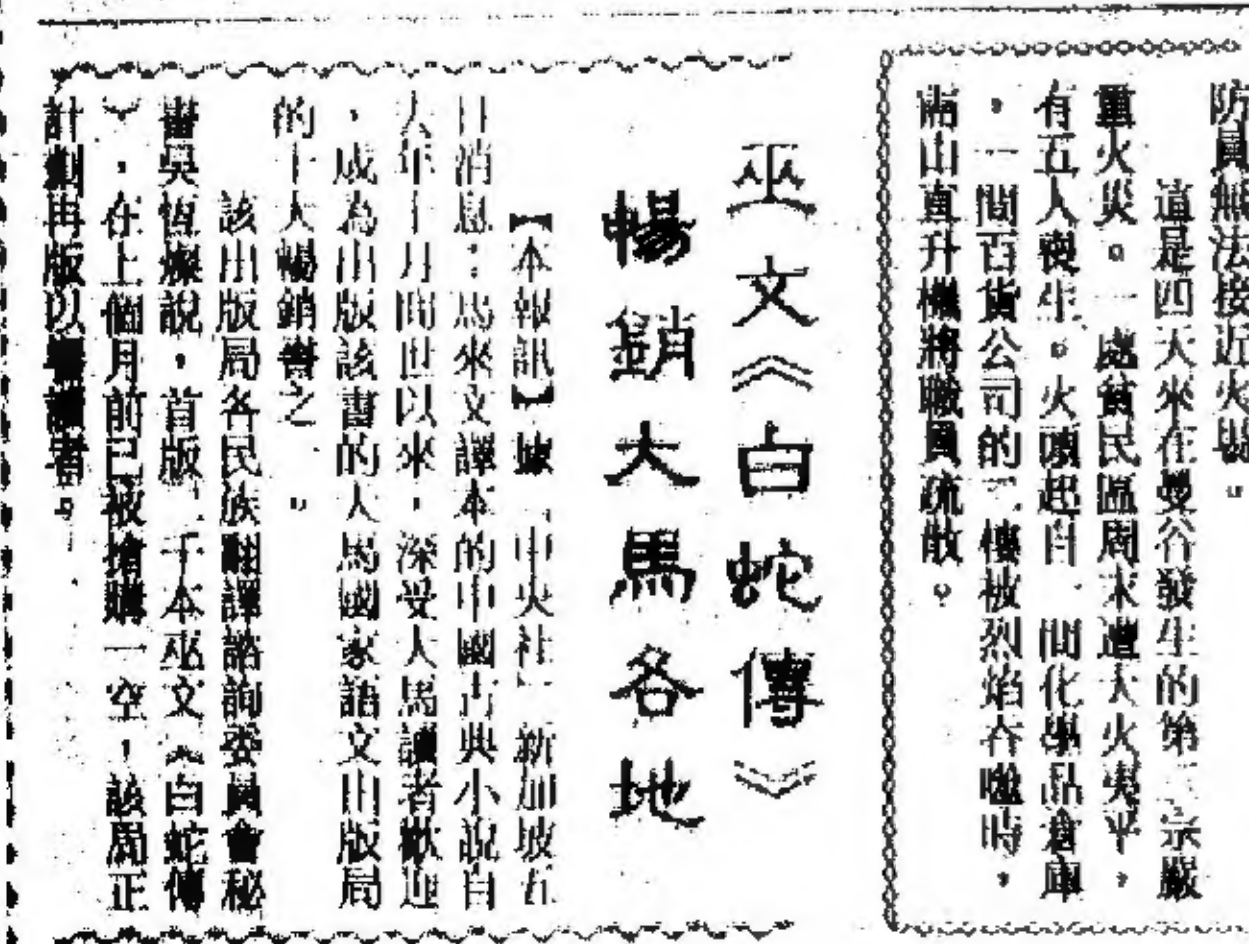 防員無法接近火場。
這是四天來在曼谷發生的第三宗嚴
重火災。一處貧民區周末遭大火夷平，
有五人喪生。火頭起自一間化學品倉庫
，一間百貨公司的二樓被烈焰吞噬時，
兩山直升機將職員疏散。
巫文《白蛇傳》
暢銷大馬各地
【本報訊】據「中央社」新加坡五
日消息：馬來文譯本的中國古典小說自
去年十月間世以來，深受大馬讀者歡迎
，成為出版該書的大馬國家語文出版局
的十大暢銷書之一。
該出版局各民族翻譯諮詢委員會秘
書吳恆燦說，首版二千本巫文《白蛇傳
》，在上個月前已被搶購一空，該局正
計劃再版以饗讀者。